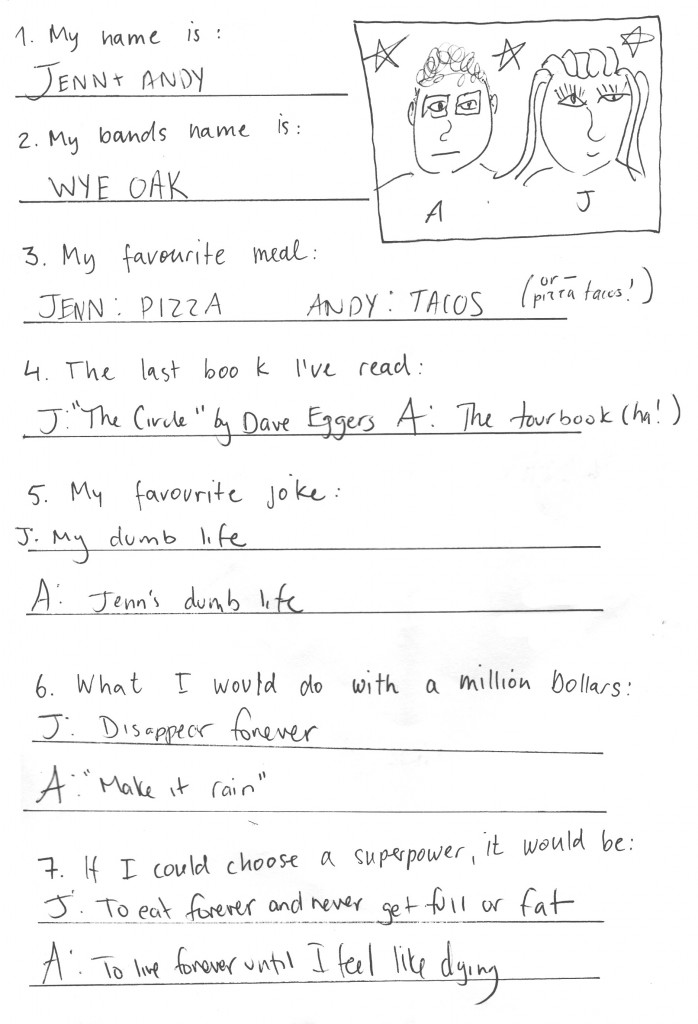 1. My name is:
JENN + ANDY
2. My bands name is:
WYE OAK
A J
3. My favourite meal:
JENN: PIZZA ANDY: TACOS (or – pizza tacos!)
4. The last book I've read:
J: "The Circle" by Dave Eggers A: The tourbook (ha!)
5. My favourite joke:
J: My dumb life
A: Jenn's dumb life
6. What I would do with a million Dollars:
J: Disappear forever
A: "Make it rain"
7. If I could choose a superpower, it would be:
J: To eat forever and never get full or fat
A: To live forever until I feel like dying